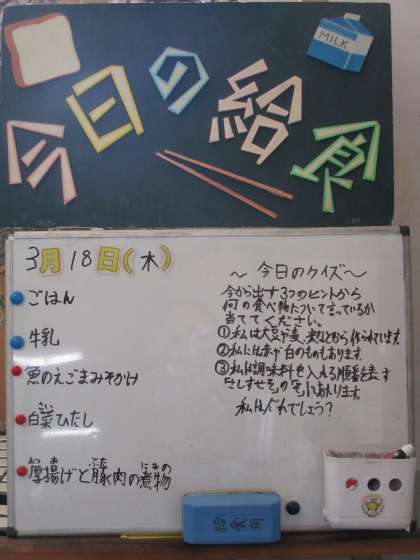 今日の給食
MILK
3月18日(木)
ごはん
牛乳
魚のえごまみそかけ
白菜ひたし
厚揚げと豚肉の煮物
～今日のクイズ～
今から出す3つのヒントから
何の食べ物について言っているか
当ててください。
①私は大豆や麦、米などから作られています
②私には赤や白のものもあります
③私は調味料を入れる順番を表す
さしすせその そ にあたります
私はだれでしょう？